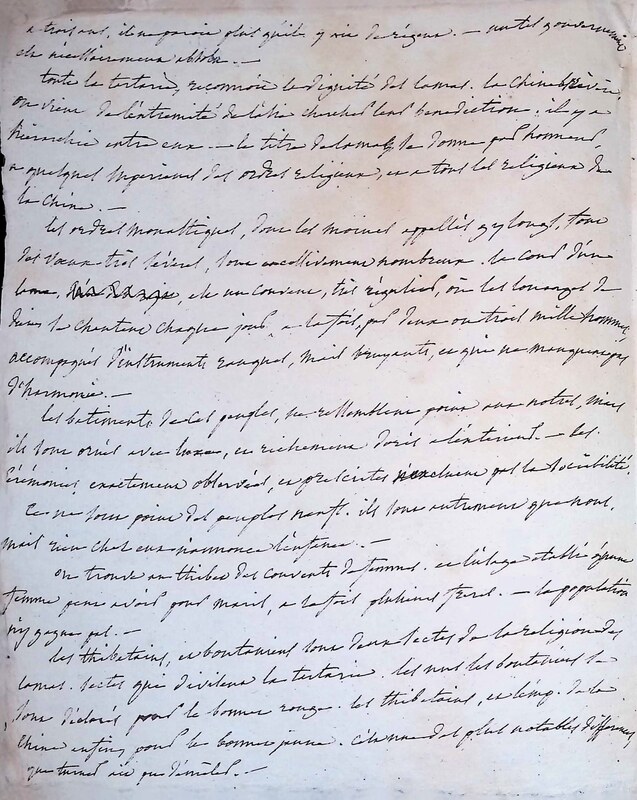 a trois ans, il ne paroit plus qu'il y vie de régens. — un tel gouvernement
est nécessairement absolu. —
toute la tartarie, reconnoit la dignité des lamas. la Chine
on vient de l'extrémité de l'asie chercher leur bénédiction. il y a
hiérarchie entre eux. — le titre de lamas se donne par honneur,
a quelques supérieurs des ordres religieux, et a tous les religieux de
la Chine. —
les ordres monastiques, dont les moines appellés gylongs, font
des voeux très sévères, sont excessivement nombreux. la cour d'un
lama, est un couvent, très régulier, où les louanges de
dieu se chantent chaque jour, a la fois, par deux ou trois mille hommes,
accompagnés d'instruments rauques, mais bruyants, et qui ne manquent pas
d'harmonie. —
les batiments de ces peuples, ne ressemblent point aux notres, mais
ils sont ornés avec luxe, et richement dorés a l'intérieur. — les
cérémonies exactement observées, et prescrites n'excluent pas la sociabilité.
Ce ne sont point des peuples neufs. ils sont autrement que nous,
mais rien chez eux n'annonce l'enfance. —
on trouve au thibet des couvents de femmes. et l'usage établi qu'une
femme peut avoir pour maris, a la fois plusieurs frères. — la population
n'y gagne pas. —
les thibetains, et boutaniens sont deux sectes de la religion des
lamas. sectes qui divisent la tartarie. les uns les boutaniens se
sont déclarés pour le bonnet rouge. les thibetains, et l'emp. de la
Chine enfin, pour le bonnet jaune. c'est une des plus notables différences
que turner ait pu démêler. —